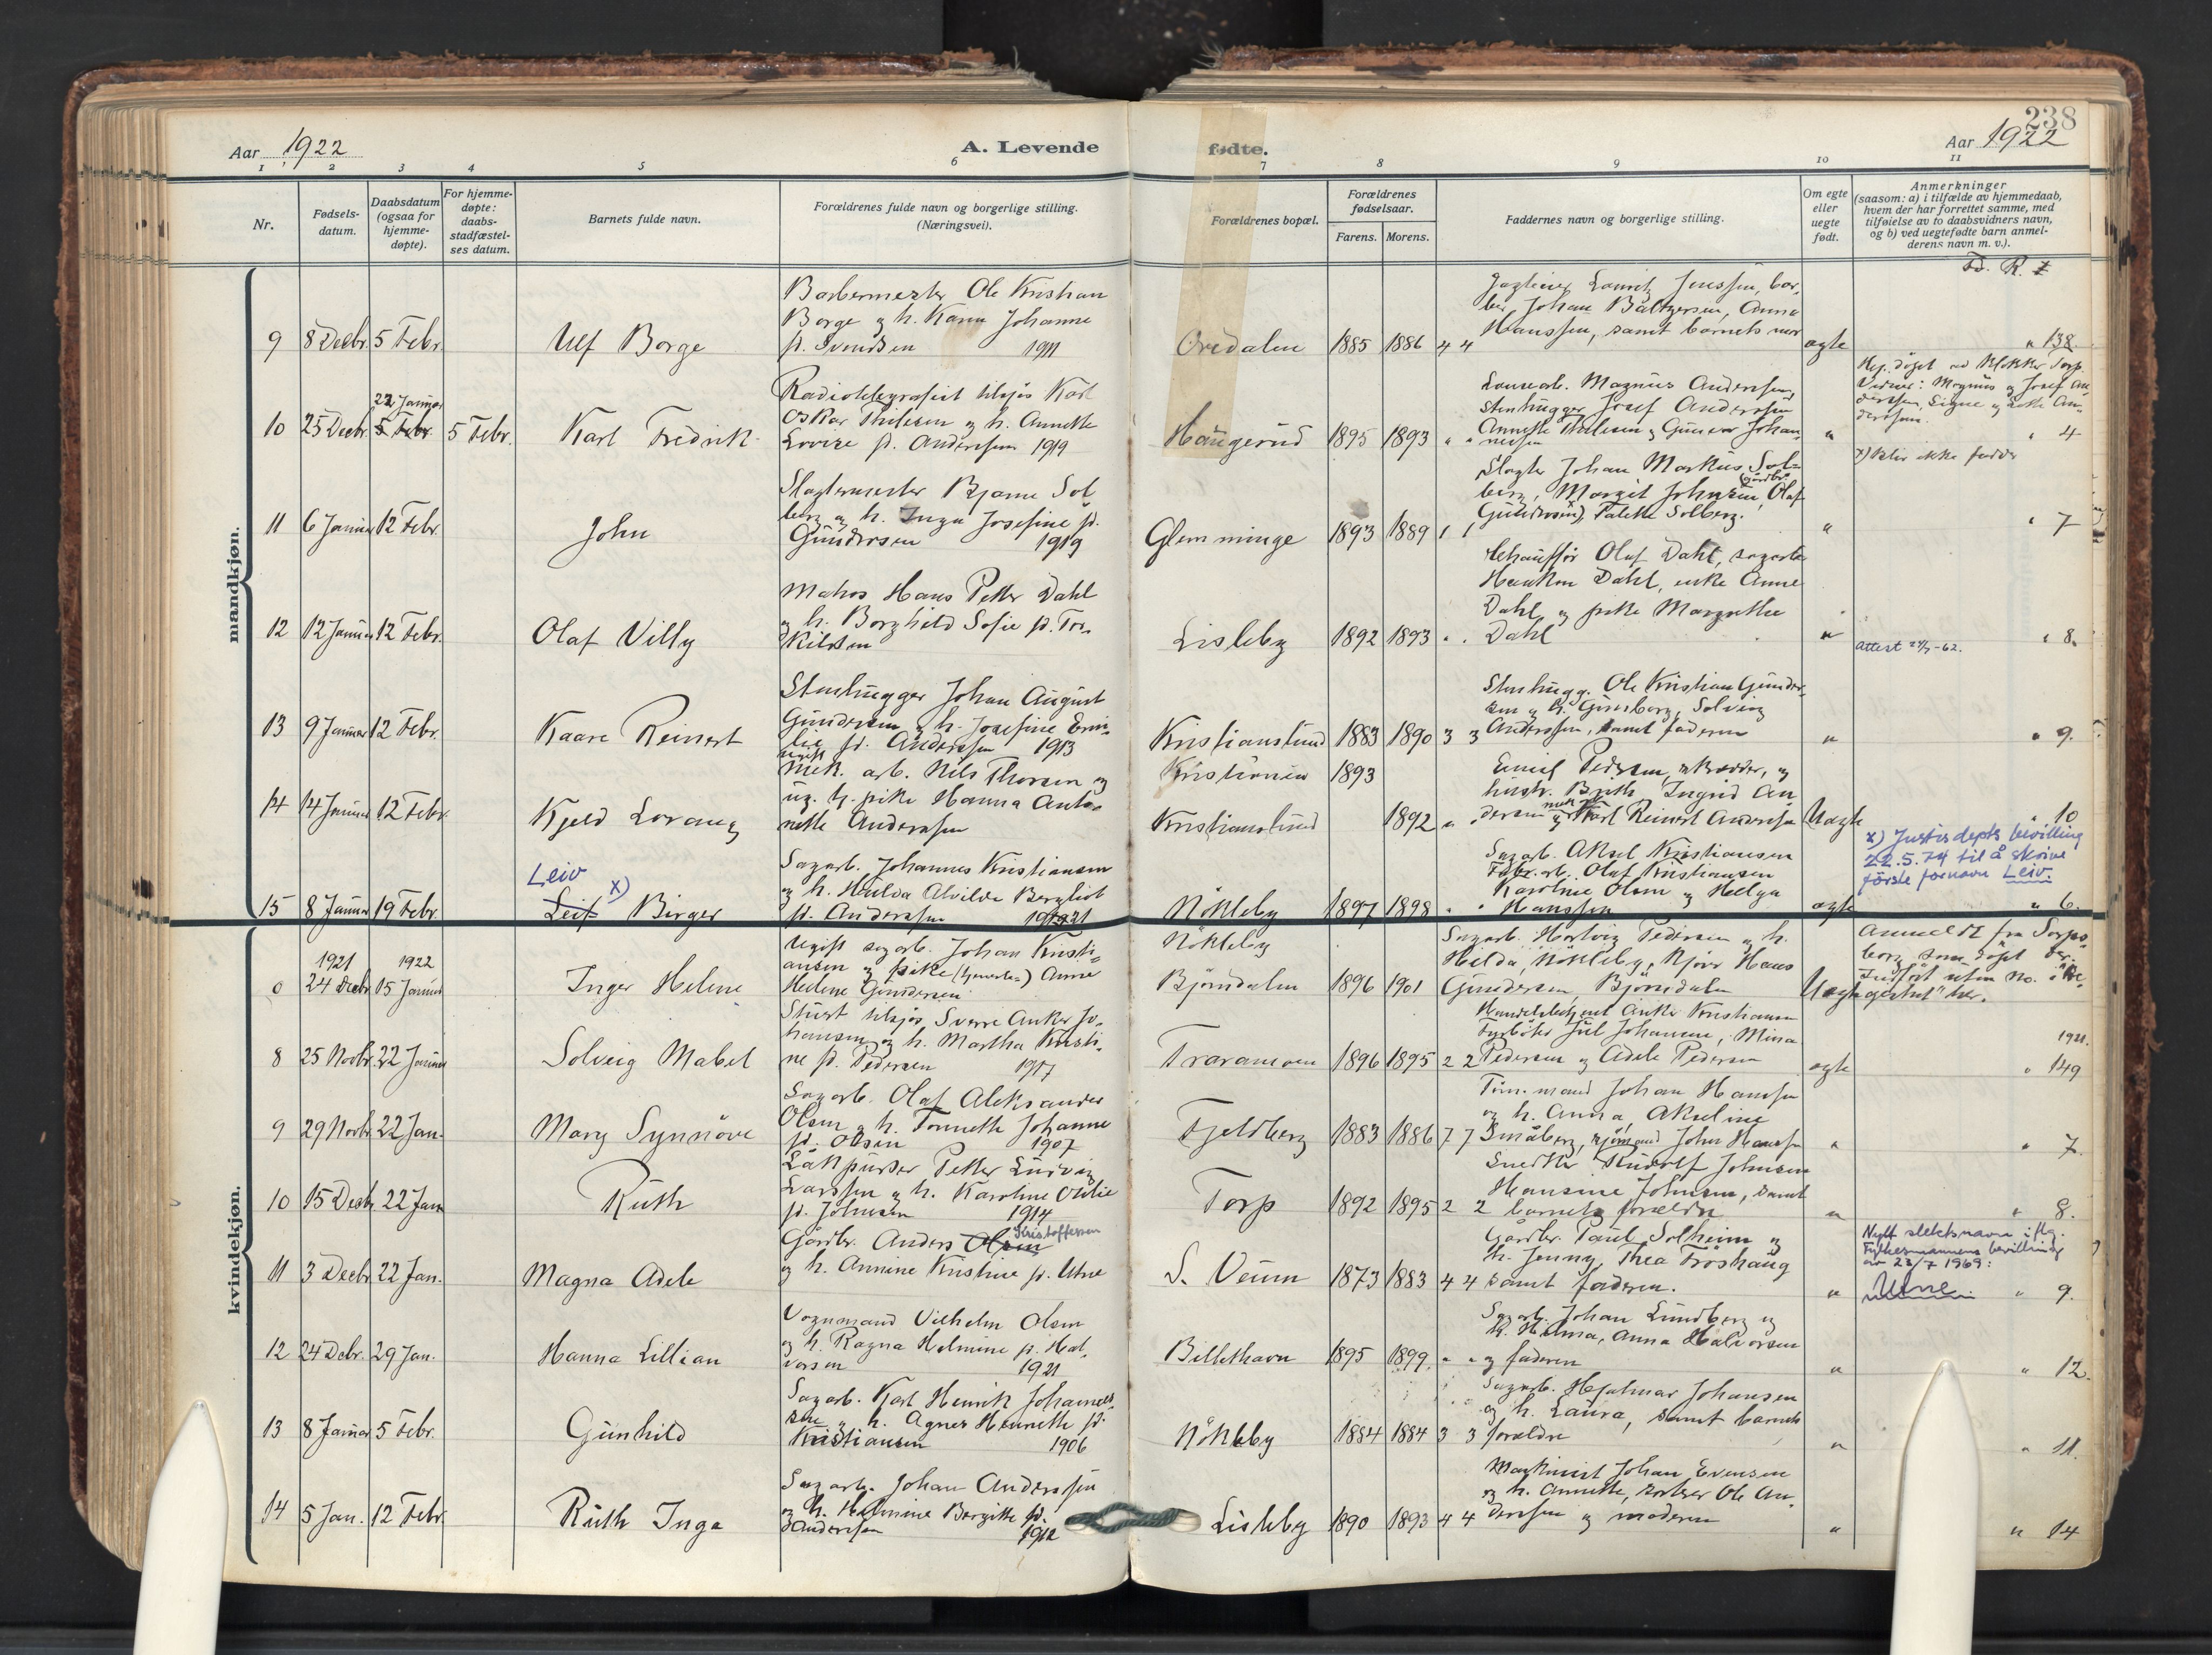 238
Aar 1922
A. Levende
fødte.
Aar 1922
1 2 3 4 5 6 7 8 9 10 11
Nr.
Fødsels-
datum.
Daabsdatum
(ogsaa for
hjemme-
døpte).
For hjemme-
døpte:
daabs-
stadfæstel-
ses datum.
Barnets fulde navn.
Forældrenes fulde navn og borgerlige stilling.
(Næringsvei).
Forældrenes bopæl.
Forældrenes
fødselsaar.
Farens. Morens.
Faddernes navn og borgerlige stilling.
Om egte
eller
uegte
født.
Anmerkninger
(saasom: a) i tilfælde av hjemmedaab,
hvem der har forrettet samme, med
tilføielse av to daabsvidners navn,
og b) ved uegtefødte barn anmel-
derens navn m. v.).
mandkjøn.
9 8 Decbr. 5 Febr.
Ulf Borge
Barbermester Ole Kristian
Borge og h. Karen Johanne
f. Svendsen 1911
Oredalen 1885 1886 4 4
Johan Baltzersen, Anna
Hanssen, samt barnets mor
egte
" 138.
10 25 Decbr.
22 Januar
5 Febr. 5 Febr.
Karl Fredrik
Radiotelegrafist tilsjøs Karl
Oskar Thilesen og h. Annette
Lovise f. Anderssen 1919
Haugerud 1895 1893 " "
Magnus Anderssen
Stenhugger Josef Anderssen
Annette Thilesen og Gunvor Johan-
nessen
"
Hj. døpt ved Klokker Torp.
Vidner: Magnus og Josef An-
derssen, Signe og Lotte An-
derssen.
" 4
x) Blir ikke fadder
11 6 Januar 12 Febr.
John
Slagtermester Bjarne Sol
berg og h. Inga Josefine f.
Gundersen 1919
Glemminge 1893 1889 1 1
Slagter Johan Markus Sol-
berg, Margit Johnsen, Olaf
Gundersen, Valette Solberg.
"
" 7
12 12 Januar 12 Febr.
Olaf Villy
Matros Hans Petter Dahl
og h. Borghild Sofie f. Tor-
kildsen
Lisleby 1892 1893 " "
Chauffør Olaf Dahl, sagarb.
Haakon Dahl, enke Anne
Dahl og pike Margrethe
Dahl
"
Attest
" 8.
13 9 Januar 12 Febr.
Kaare Reinert
Stenhugger Johan August
Gundersen og h. Josefine Emi-
lie f. Anderssen 1913
Kristianslund 1883 1890 3 3
Stenhugg. Ole Kristian Gunder-
sen og h. Gunborg, Solveig
Anderssen, samt faderen
"
" 9.
14 14 Januar 12 Febr.
Kjeld Lorang
Mek. arb. Nils Thorsen og
ug. h. pike Hanna Anto-
nette Anderssen
Kristiania 1893
Kristianslund 1892 " "
Emil Pedersen, skrædder, og
hustr. Ingrid An
dersen og Karl Reinert Anderssen
Uegte
" 10
x) Justisdepts bevilling
22.5.74 til å skrive
første fornavn Leiv.
15 8 Januar 19 Febr.
Leiv x)
Leif Birger
Sagarb. Johannes Kristiansen
og h. Hulda Alvilde Bergliot
f. Anderssen 1921
Nökleby 1897 1898 " "
Sagarb. Aksel Kristiansen
Fabr.arb. Olaf Kristiansen
Karoline Olsen og Helga
Hanssen
egte
" 6.
kvindekjøn.
0
1921 1922
24 Decbr. 15 Januar
Inger Helene
Ugift sagarb. Johan Kristi-
ansen og pike Anne
Helene Gundersen
Nökleby
Björndalen 1896 1901
Sagarb. Hartvig Pedersen og h.
Hilda, Nökleby, Hans
Gundersen, Björndalen
Uegte
Anmeldt fra Sarps-
borg som døpt der.
Indført uten no.
8 25 Novbr. 22 Januar
Solveig Mabel
Stuert tilsjøs, Sverre Anker Jo-
hansen og h. Martha Kristi-
ne f. Pedersen 1917
Traramoen 1896 1895 2 2
Handelsbetjent Anker Kristiansen
Fyrbøter Jul Johansen, Mina
Pedersen og Adele Pedersen
egte
1921.
" 149
9 29 Novbr. 22 Jan.
Mary Synnöve
Sagarb. Olaf Aleksander
Olsen og h. Tonnette Johanne
f. Olsen 1907
Fjeldberg 1883 1886 7 7
Töm.mand Johan Hanssen
og h. Anna, Akseline
Småberg, sjømand John Hanssen
"
" 7.
10 15 Decbr. 22 Jan
Ruth
Petter Ludvig
Larssen og h. Karoline Otilie
f. Johnsen 1914
Torp 1892 1895 2 2
Snedker Rudolf Johnsen
Hansine Johnsen, samt
barnets forældre
"
" 8.
11 3 Decbr. 22 Jan.
Magna Adele
Gårdbr. Anders Olsen Kristoffersen
og h. Annine Kristine f. Utne
S. Veum 1873 1883 4 4
Gårdbr. Paul Solheim og
h. Jenny, Thea Fröshaug
samt faderen.
"
Nytt slektsnavn iflg.
Fylkesmannens bevilling
av 23/7 1969:
Utne.
" 9.
12 24 Debr. 29 Jan.
Hanna Lillian
Vognmand Vilhelm Olsen
og h. Ragna Helmine f. Hal-
vorsen 1921
Billethavn 1895 1899 " "
Sagarb. Johan Lundberg og
h. Helma, Anna Halvorsen
og faderen
"
" 12.
13 8 Januar 5 Febr.
Gunhild
Sagarb. Karl Henrik Johannes-
sen og h. Agnes Hennette f.
Kristiansen 1906
Nökleby 1884 1884 3 3
Sagarb. Hjalmar Johansen
og h. Laura, samt barnets
forældre
"
" 11.
14 5 Jan. 12 Febr.
Ruth Inga
Sagarb. Johan Anderssen
og h. Helmine Bergitte f.
Anderssen 1912
Lisleby 1890 1893 4 4
Maskinist Johan Evensen
og h. Annette, Ole An-
derssen og moderen
"
" 14